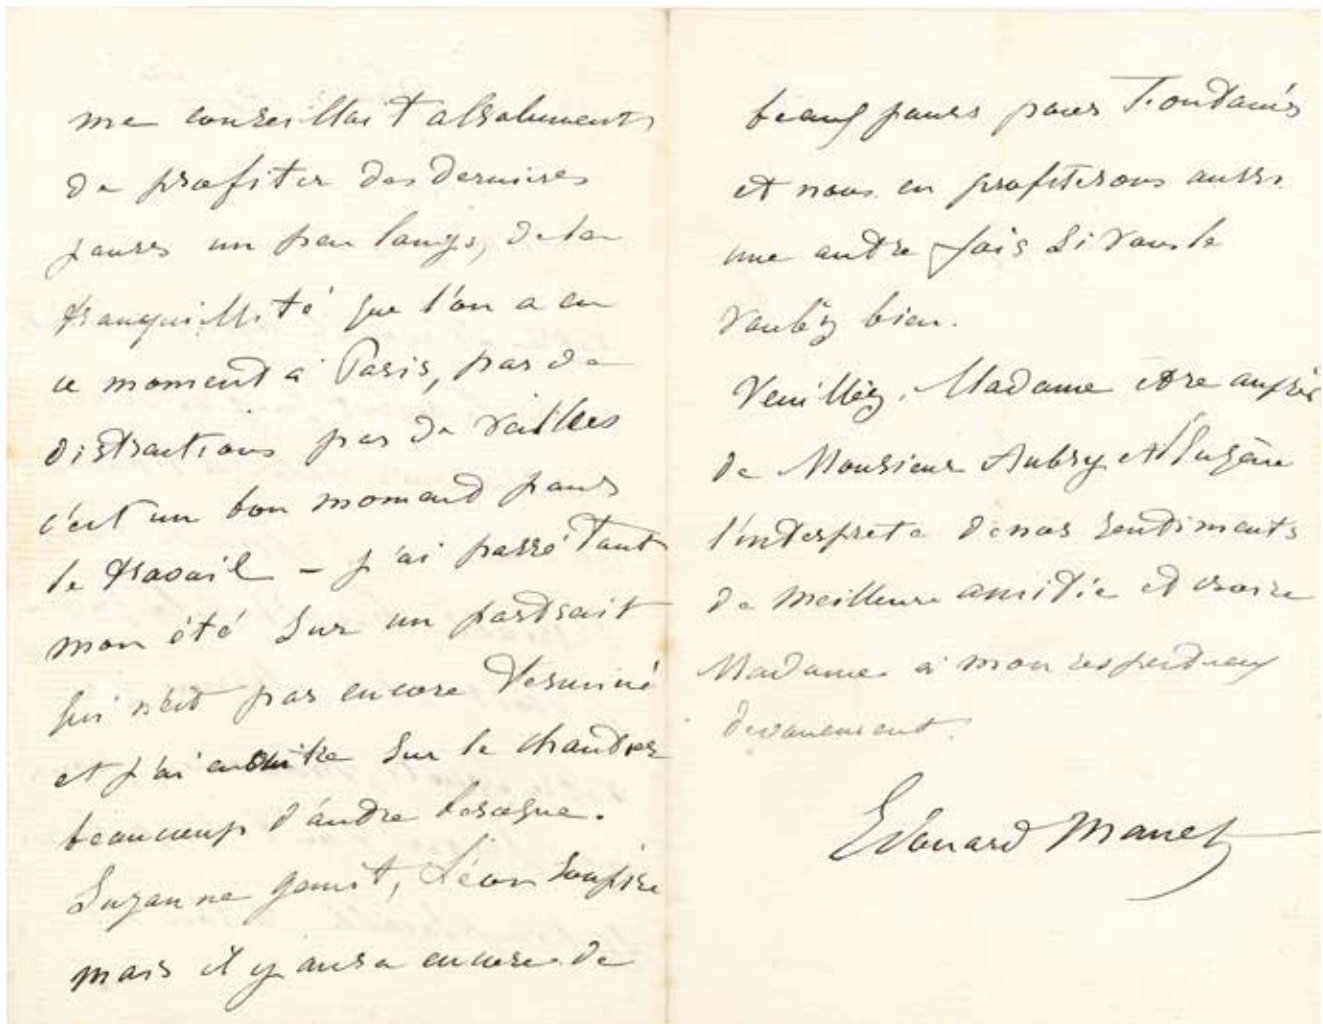 me conseillait absolument
de profiter des derniers
jours un peu longs, de la
tranquillité que l'on a en
ce moment à Paris, pas de
distractions pas de veilles
c'est un bon moment pour
le travail – j'ai passé tout
mon été sur un portrait
qui n'est pas encore terminé
et j'ai ensuite sur le chantier
beaucoup d'autre besogne.
Suzanne gémit, Léon soupire
mais il y aura encore de
beaux jours pour
et nous en profiterons aussi
une autre fois si vous le
voulez bien.
Veuillez, Madame être auprès
de Monsieur Aubry et d'Eugène
l'interprete de nos sentiments
de meilleure amitié et croire
Madame à mon respectueux
devouement.
Edouard Manet